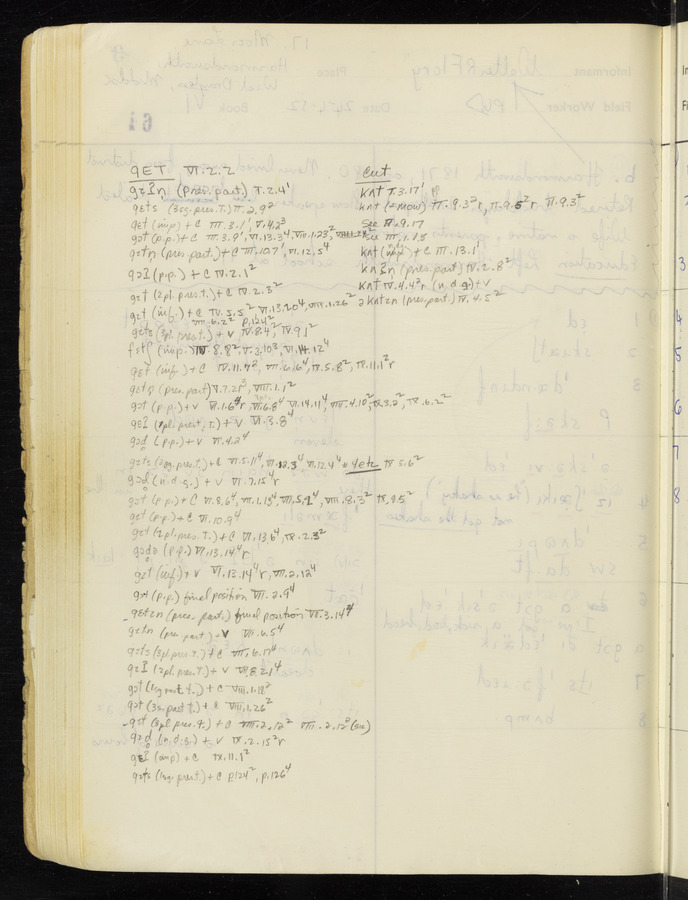 GET VI.2.2
gɛɪn (pres. part.) V.2.4'
gɛts (3sg. pres. T.) II.2.9²
gɛt (imp.) + C III.3.1', V.4.2³
gɒt (p.p.) + C III.3.9', VI.13.3⁴, VIII.1.23²
gɛtn (pres. part.) + C III.10.7', VI.12.5⁴
gɒɪ (p.p.) + C IV.2.1²
gɛt (2pl. pres. t.) + C IV.2.3²
gɛt (inf.) + C IV.5.5² VI.13.20⁴, VIII.1.26²
VIII.6.2² p.124²
gɛts (3pl. pres. t.) + V IV.8.4², IV.9.1²
(imp.) IV.8.8², V.3.10³, VI.14.12⁴
gɛt (inf.) + C IV.11.7², VII.6.16⁴, IX.5.8², IX.11.1²r
(pres. part.) V.7.21³, VIII.1.1²
gɒt (p.p.) + V VI.1.6⁴r, VI.6.8⁴ VI.14.11⁴, VIII.4.10², IX.3.2², IX.6.2²
gɛɪ (2pl. pres. t.) + V VI.3.8⁴
gɒd (p.p.) + V VI.4.2⁴
gɛts (3sg. pres. t.) + C VI.5.11⁴, VI.12.4⁴ IX.5.6²
gɒd (n.d.g.) + V VI.7.15⁴r
gɒt (p.p.) + C VI.8.6⁴, VII.1.15⁴, VII.5.2⁴, VIII.8.3² IX.9.5²
gɛt (p.p.) + C VI.10.9⁴
gɛt (2pl. pres. t.) + C VI.13.6⁴, IX.2.3²
(p.p.) VI.13.14⁴r
gɛt (inf.) + V VI.13.14⁴r, VII.2.12⁴
gɒt (p.p.) final position VII.2.9⁴
gɛtən (pres. part.) final position VII.3.14⁴
gɛtn (pres. part.) + V VII.6.5⁴
gɛts (3pl. pres. t.) + C VII.6.17⁴
gɛɪ (2pl. pres. T.) + V VII.8.21⁴
gɒt (1sg past t.) + C VIII.1.18²
gɒt (3s. past t.) + C VIII.1.26²
gɛt (3pl pres. t.) + C VIII.2.12² VIII.2.12² (sic)
gɒd (n.d.g.) + V IX.2.15²r
gɛɪ (imp) + C IX.11.1²
gɛts (1sg. pres. t.) + C p.124², p.126⁴
Cut
kʌt V.3.17'
kʌt (= mow) II.9.3²r, II.9.5²r II.9.3²
see II.9.17
see III.1.15
kʌt (inf.) + C III.13.1'
kʌɪn (pres. part) IV.2.8²
kʌt IV.4.4²r (n.d.g.) + V
ə kʌtən (pres. part.) IV.4.5²